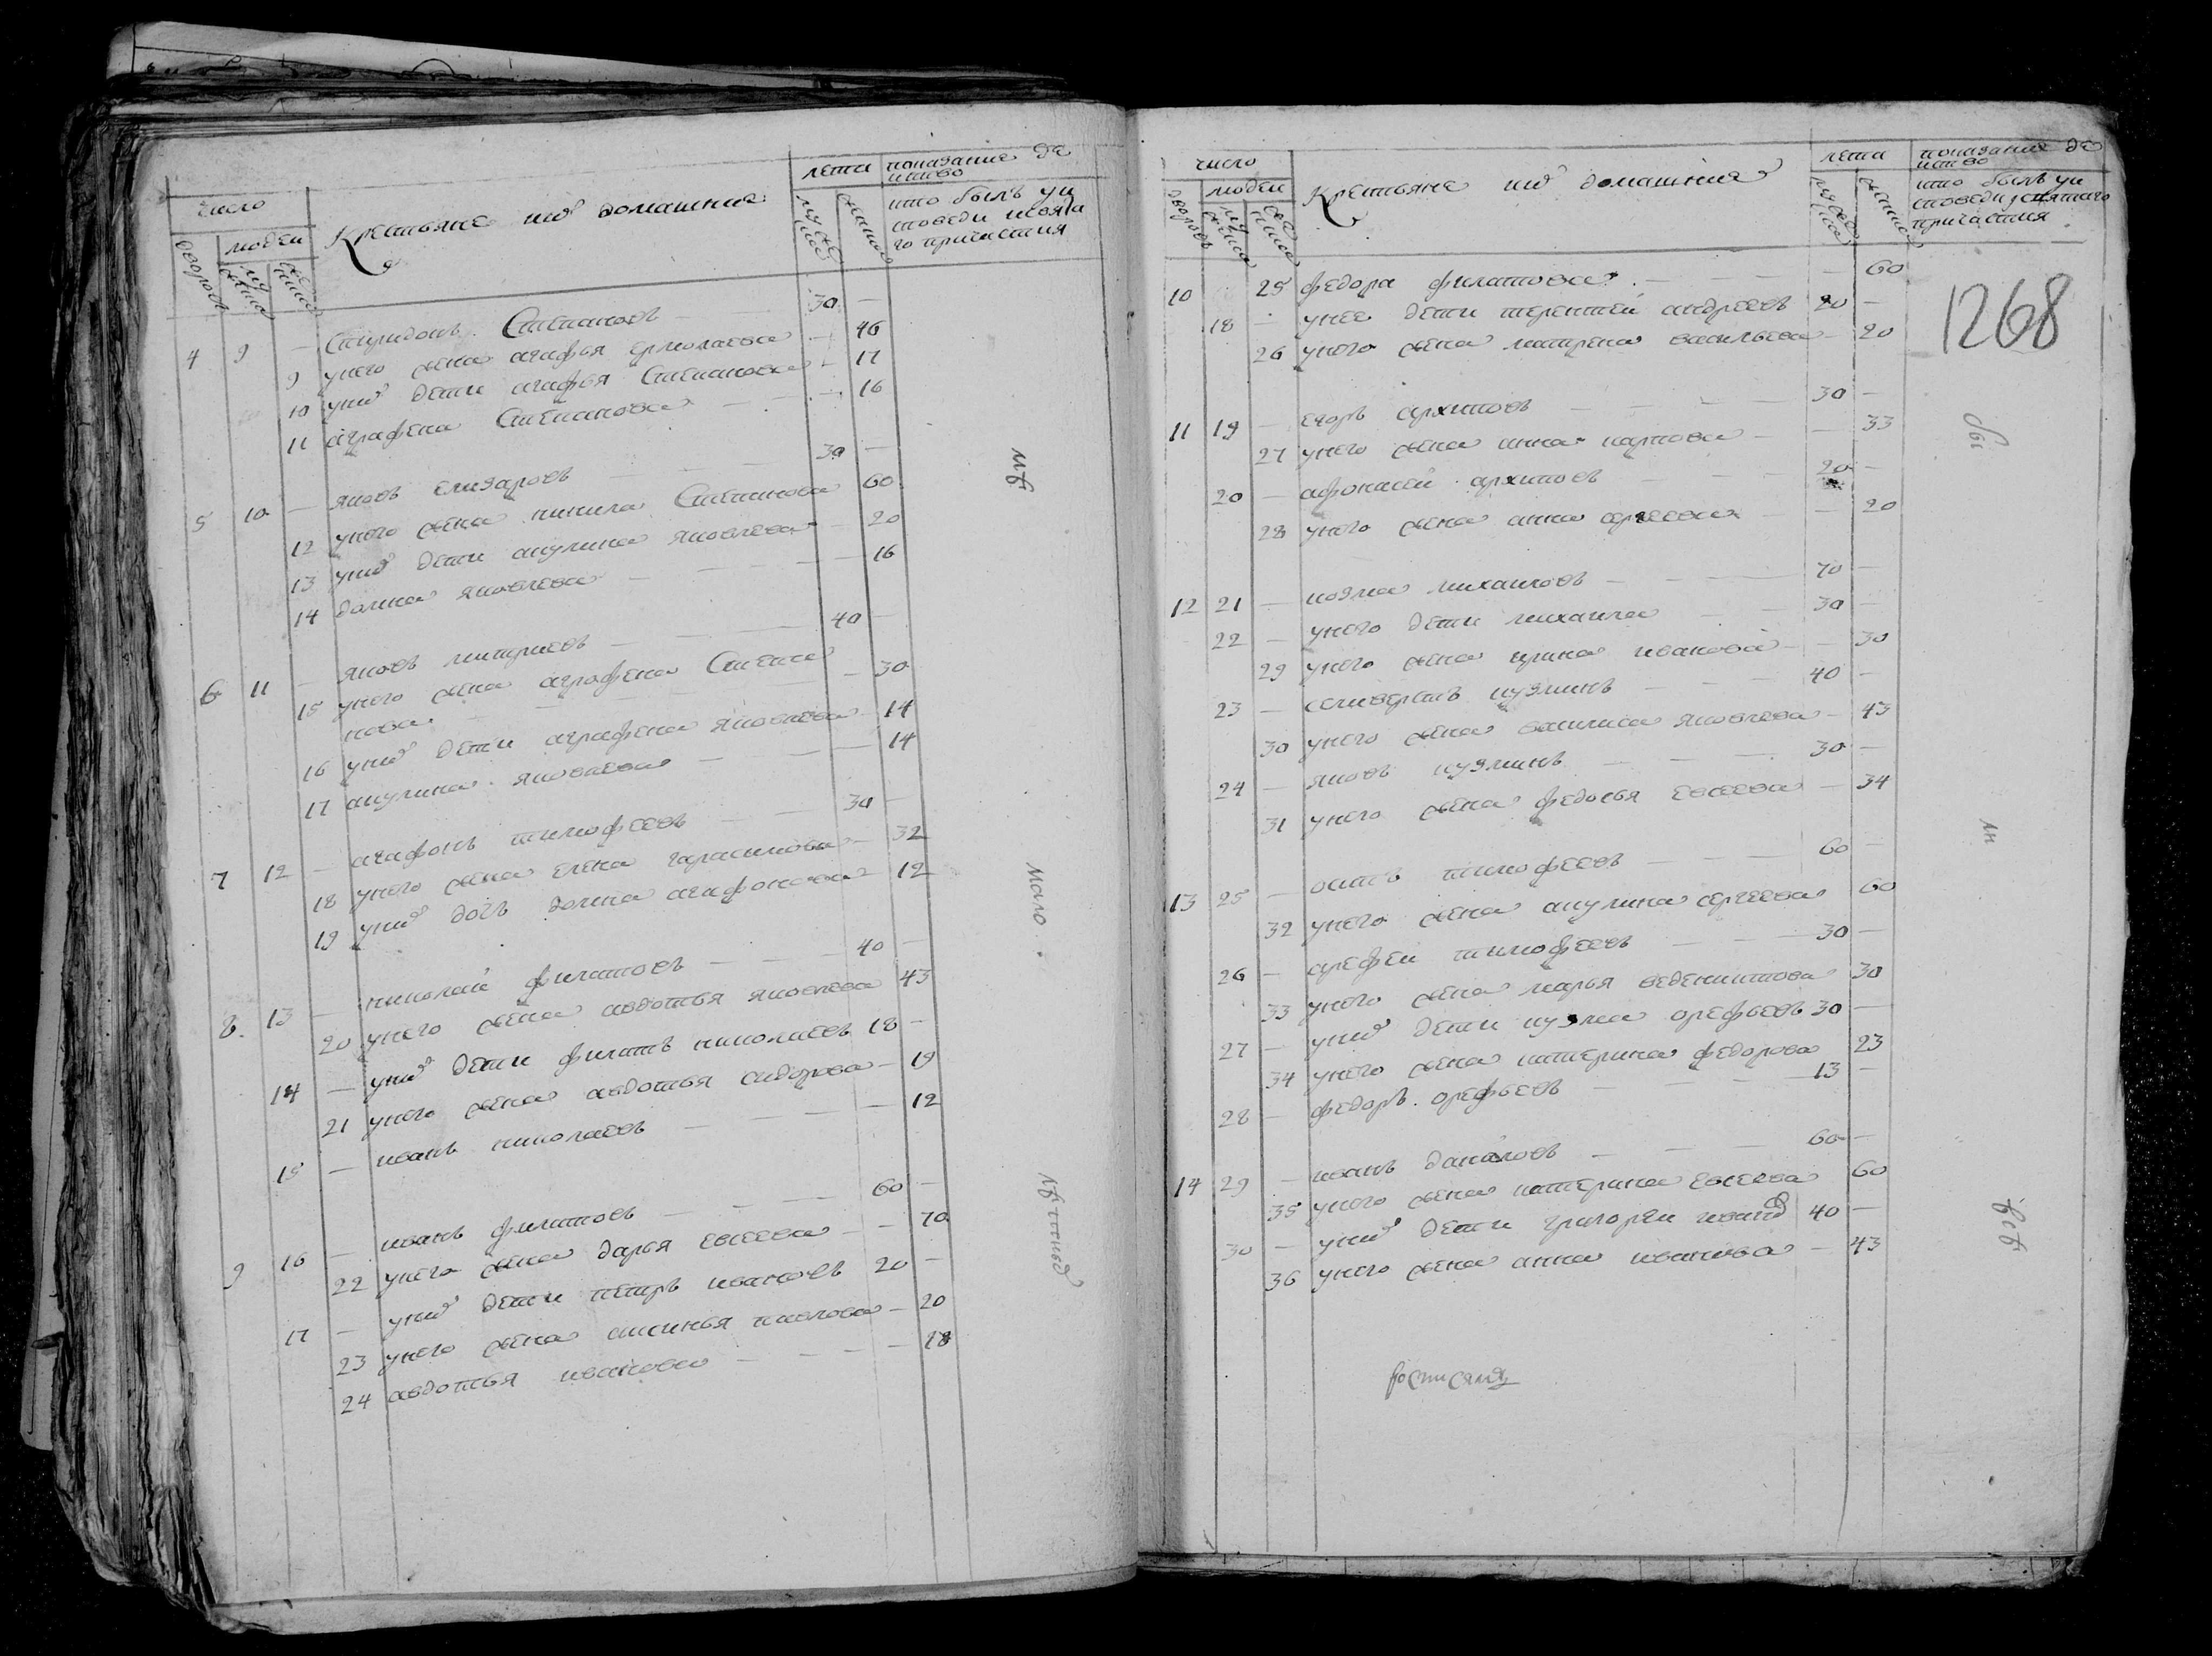 число
Крестьяне ихъ домашние
лета
показание де
иство
дворов
людей
му
жеска
же
нска
мужес
ка
женска
кто былъ уи
споведи исвята
го причастия
4 9 — Спиридонъ Степановъ — 30 —
9 унего жена агафья ермолаева — 46
10 унихъ дети агафья Степанова — 17
11 аграфена Степанова — 16
5 10 — яковъ елизаровъ — 30 —
12 унего жена ненила Степанова 60
13 унихъ дети акулина яковлева — 20
14 домна яковлева — 16
6 11 — яковъ митриевъ — 40 —
15 унего жена аграфена Степа
нова — 30
16 унихъ дети аграфена яковлева — 14
17 акулина яковлева — 14
7 12 — агафонъ тимофеевъ — 30 —
18 унего жена елена гарасимова — 32
19 унихъ дочь домна агафонова — 12
8 13 — николай филатовъ — 40 —
20 унего жена авдотья яковлева 43
14 — унихъ дети филатъ николаевъ 18 —
21 унего жена авдотья сидорова — 19
15 — иванъ николаевъ — 12
9 16 — иванъ филатовъ — 60 —
22 унего жена дарья евсеева — 70
17 — унихъ дети петръ ивановъ 20 —
23 унего жена аксинья павлова — 20
24 авдотья иванова — 18
мало
число
Крестьяне ихъ домашния
лета
показание де
иство
дворовъ
людей
му
жеска
же
нска
мужес
ка
женска
кто былъ уи
споведи исвятаго
причастия
1268
10 25 федора филатова — 60
18 — унее дети терентей андреевъ 20 —
26 унего жена матрена васильева — 20
11 19 — егоръ архиповъ — 30 —
27 унего жена анна карпова — 33
20 — афонасей архиповъ — 20 —
28 унего жена анна сергеева — 20
12 21 — козма михаиловъ — 70 —
22 — унего дети михаила — 30 —
29 унего жена ирина иванова — 30
23 — селиверстъ кузминъ — 40 —
30 унего жена василиса яковлева — 43
24 — яковъ кузминъ — 30 —
31 унего жена федосья евсеева — 34
13 25 — осипъ тимофеевъ — 60 —
32 унего жена акулина сергеева 60
26 — арефей тимофеевъ — 30 —
33 унего жена марья веденихтова 30
27 — унихъ дети кузма орефьевъ 30 —
34 унего жена катерина федорова 23
28 — федоръ орефьевъ — 13 —
14 29 — иванъ даниловъ — 60 —
35 унего жена катерина евсеева 60
30 — унихъ дети григорей иванов 40 —
36 унего жена анна иванова — 43
бы
ли